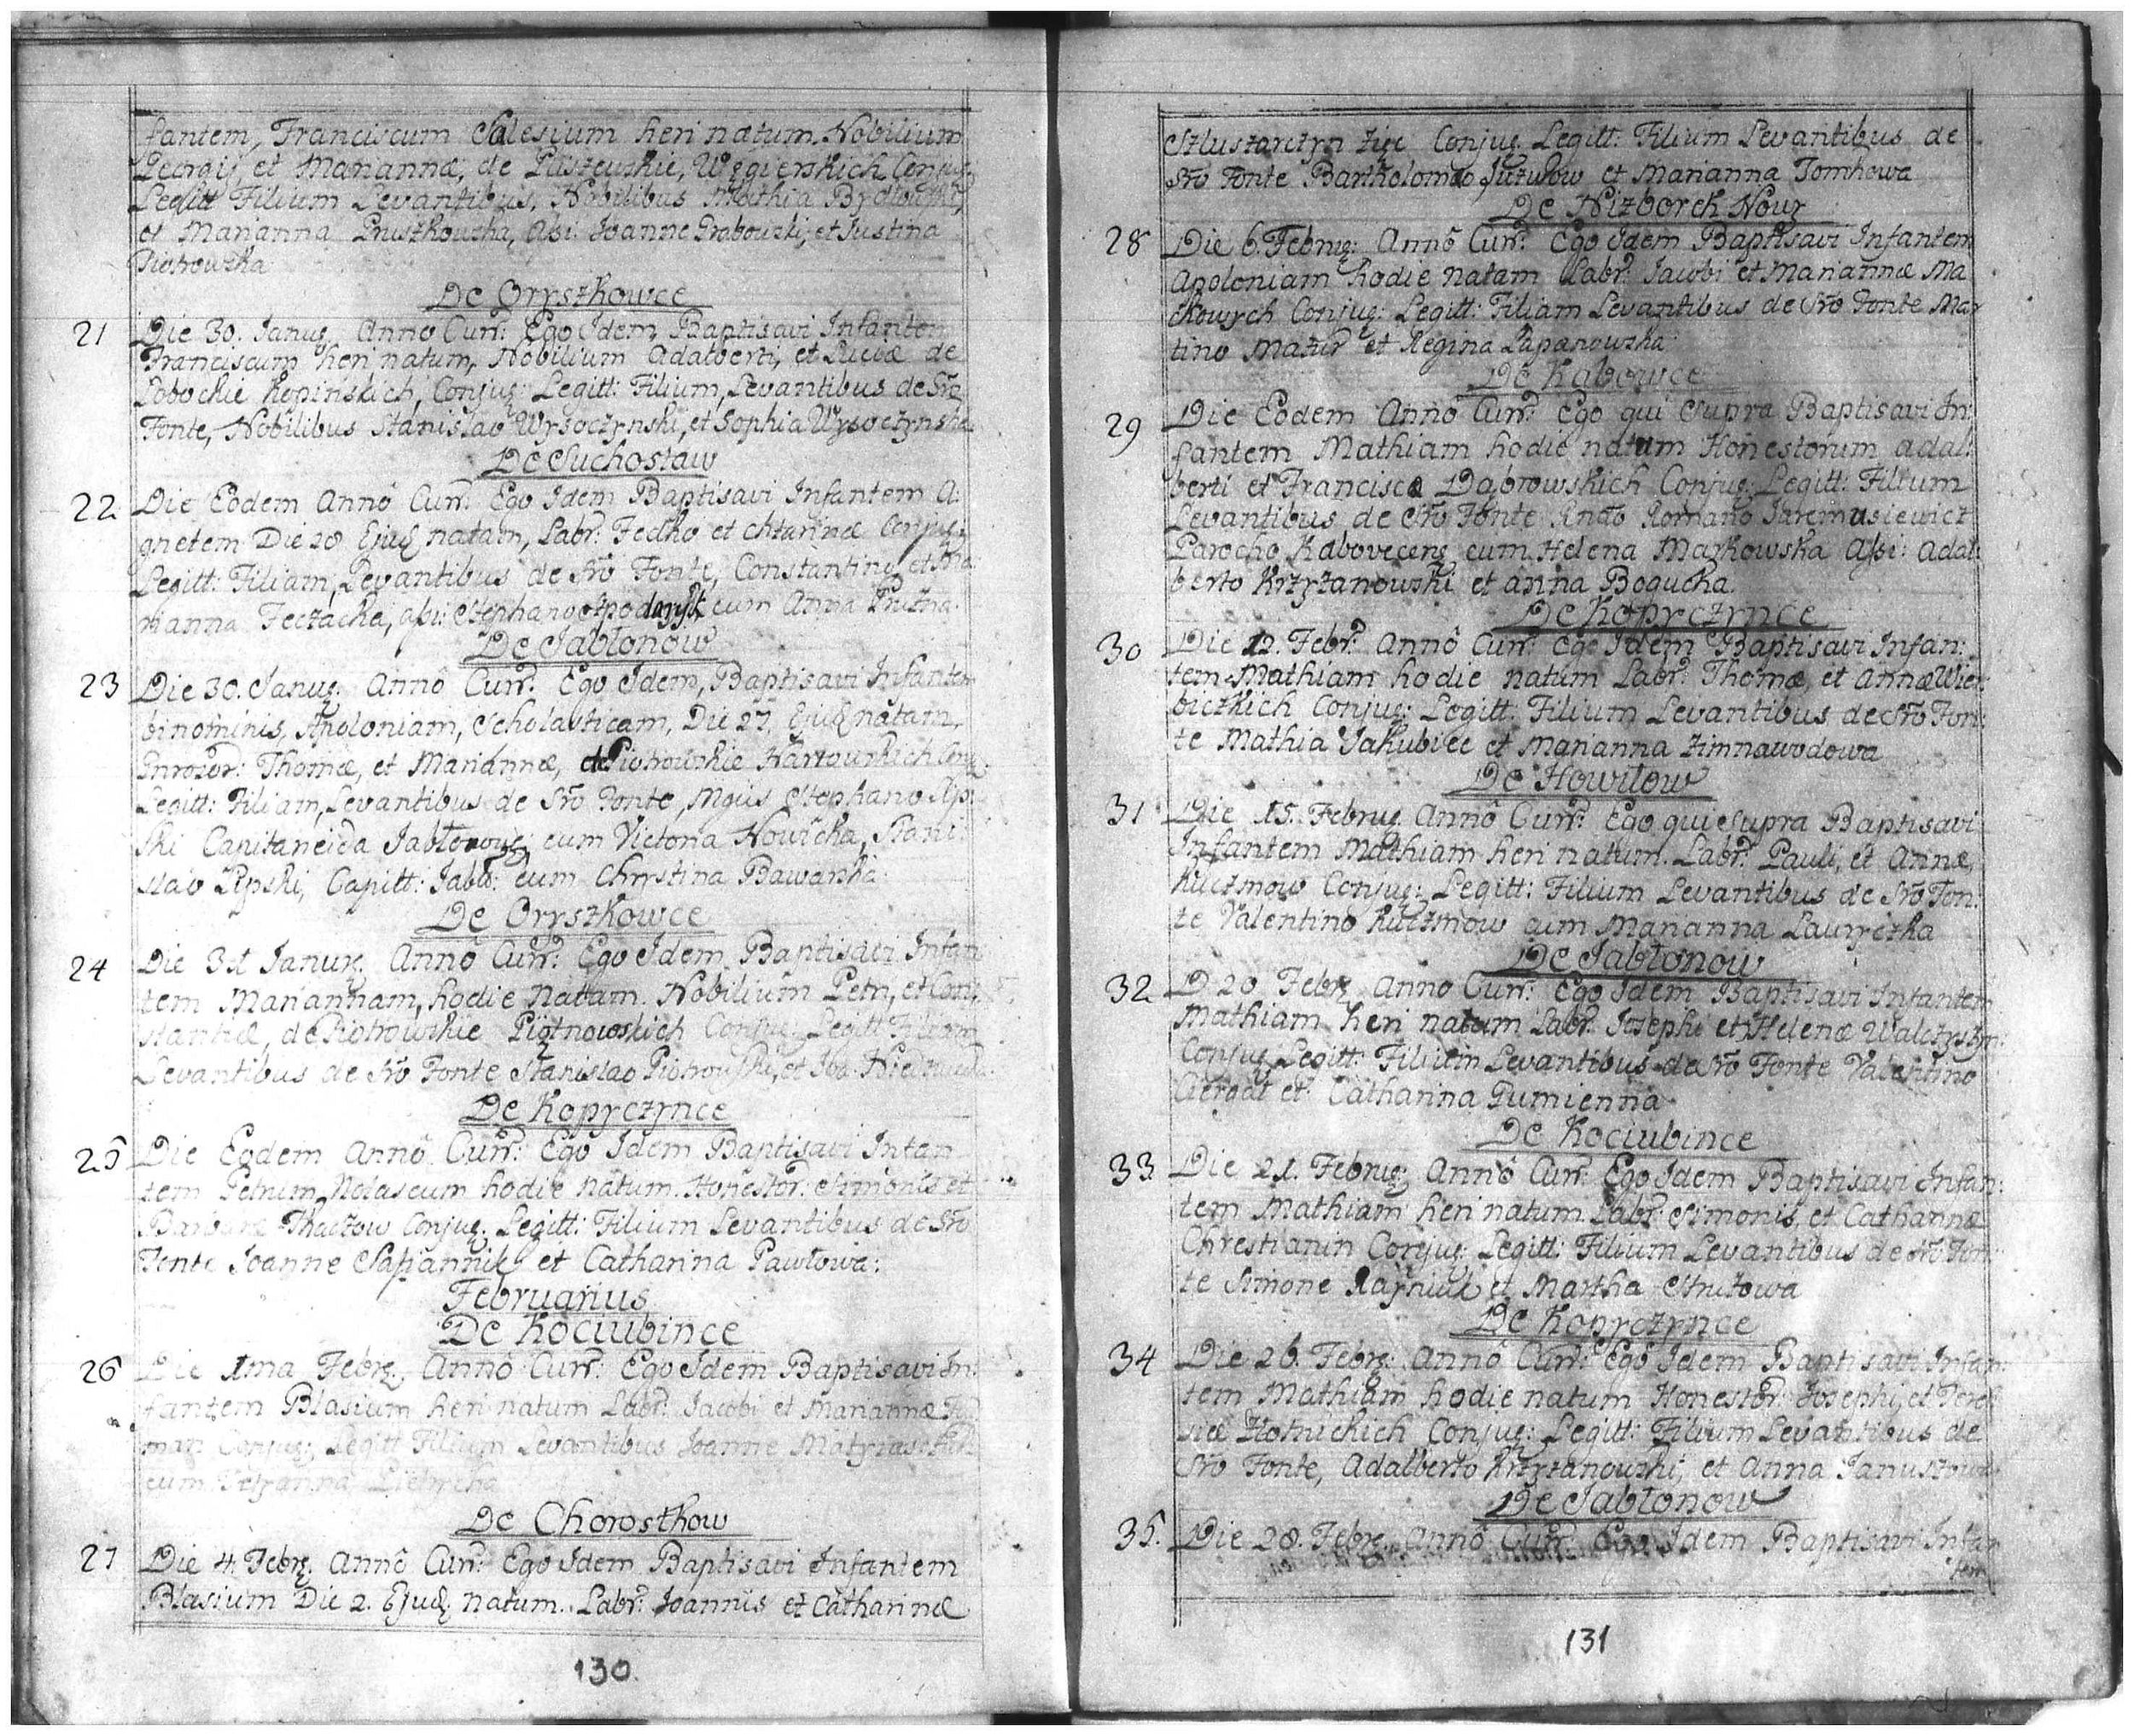 fantem, Franciscum Salesium heri natum. Nobilium
Georgij, et Mariannæ, de Węgierskich Conjug:
Legitt Filium Levantibus, Nobilibus Mathia
et Marianna Pruszkowska, Assi: Joanne Grabowski, et Justina
Piotrowska
De Oryszkowce
21 Die 30. Januę Anno Curr: Ego Idem Baptisavi Infantem
Franciscum heri natum, Nobilium Adalberti, et Luciæ de
Kopinskich, Conjug: Legitt: Filium, Levantibus de Sro
Fonte, Nobilibus Stanislao Wysoczynski, et Sophia Wysoczynska
De Suchostaw
22 Die Eodem Annô Curr: Ego Idem Baptisavi Infantem A:
gnetem Die 28 Ejuę natam, Labr: Fedko et Conjug:
Legitt: Filiam, Levantibus de Srō Fonte, Constantino, et Ma
rianna Feczacka, assi: Stephano cum Anna
De Jabłonow
23 Die 30. Januę: Annô Curr: Ego Idem, Baptisavi Infantem
binominis, Apoloniam, Scholasticam, Die 27. Ejuę natam,
Thomæ, et Mariannæ, de Piotrowskie Conjug:
Legitt: Filiam, Levantibus de Srō Fonte, Mgūs Stephano Lip:
ski Capitaneida cum Victoria Nowicka, Stani
slao Lipski, Capitt: Jabło: cum Chrystina Bawanka
De Oryszkowce
24 Die 31 Januę. Annô Curr: Ego Idem Baptisavi Infan
tem Mariannam, hodie Natam. Nobilium Petri, et Con:
stantiæ, de Piotrowskie Conjug: Legitt Filiam
Levantibus de Srō Fonte Stanislao Piotrowski, et
De Kopyczynce
25 Die Eodem Annô Curr: Ego Idem Baptisavi Infan
tem Petrum Nolascum hodie natum. Honestor: Simonis et
Barbaræ Tkaczow Conjug: Legitt: Filium Levantibus de Srō
Fonte Joanne et Catharina Pawłowa:
Februarius
De Kociubince
26 Die 1ma Febrę. Annô Curr: Ego Idem Baptisavi In:
fantem Blasium heri natum Labr: Jacobi et Mariannæ
man Conjug: Legitt Filium Levantibus Joanne
cum
De Chorostkow
27 Die 4. Febrę. Annô Curr: Ego Idem Baptisavi Infantem
Blasium Die 2. Ejuę natum. Labr: Joannis et Catharinæ
130.
Conjug: Legitt: Filium Levantibus de
Srō Fonte Bartholomæo et Marianna Tomkowa
De Nizborck Nouę
28 Die 6. Februę: Annô Curr: Ego Idem Baptisavi Infantem
Apoloniam hodie natam Labr: Jacobi et Mariannæ Ma
ckowych Conjug: Legitt: Filiam Levantibus de Srō Fonte Mar
tino Mazur et Regina Łapanowska
De Kabowce
29 Die Eodem Annô Curr: Ego qui Supra Baptisavi In:
fantem Mathiam hodie natum Honestorum Adal:
berti et Franciscæ Dąbrowskich Conjug: Legitt: Filium
Levantibus de Srō Fonte Rndo Romano Jaremusiewicz
Parocho Kabovecenę cum Helena Mazkowska Assi: Adal:
berto Krzyżanowski et Anna Bogucka.
De Kopyczynce
30 Die 12. Febr: Annô Curr: Ego Idem Baptisavi Infan:
tem Mathiam hodie natum Labr: Thomæ, et Annæ Wier
bickich Conjug: Legitt: Filium Levantibus de Srō Fon:
te Mathia Jakubiec et Marianna Zimnawodowa
De Howiłow
31 Die 15. Februę. Annô Curr: Ego qui Supra Baptisavi
Infantem Mathiam heri natum. Labr: Pauli, et Annæ,
Kuczmow Conjug: Legitt: Filium Levantibus de Srō Fon:
te Valentino Kuczmow cum Marianna Lawryczka
De Jabłonow
32 D 20 Febrę Anno Curr: Ego Idem Baptisavi Infantem
Mathiam heri natum Labr: Josephi et Helenæ
Conjug Legitt: Filium Levantibus de Srō Fonte Valentino
et Catharina Gumienna
De Kociubince
33 Die 21. Februę: Annô Curr: Ego Idem Baptisavi Infan:
tem Mathiam heri natum Labr: Simonis, et Catharinæ
Chrestianin Conjug: Legitt: Filium Levantibus de Srō Fon:
te Simone et Martha
De Kopyczynce
34 Die 26. Febrę: Annô Curr: Ego Idem Baptisavi Infan:
tem Mathiam hodie natum Honestor: Josephi, et Tere
siæ Hotnickich Conjug: Legitt: Filium Levantibus de
Srō Fonte, Adalberto Krzyżanowski, et Anna
De Jabłonow
35. Die 28. Febrę. Annô Curr: Ego Idem Baptisavi Infan
tem
131